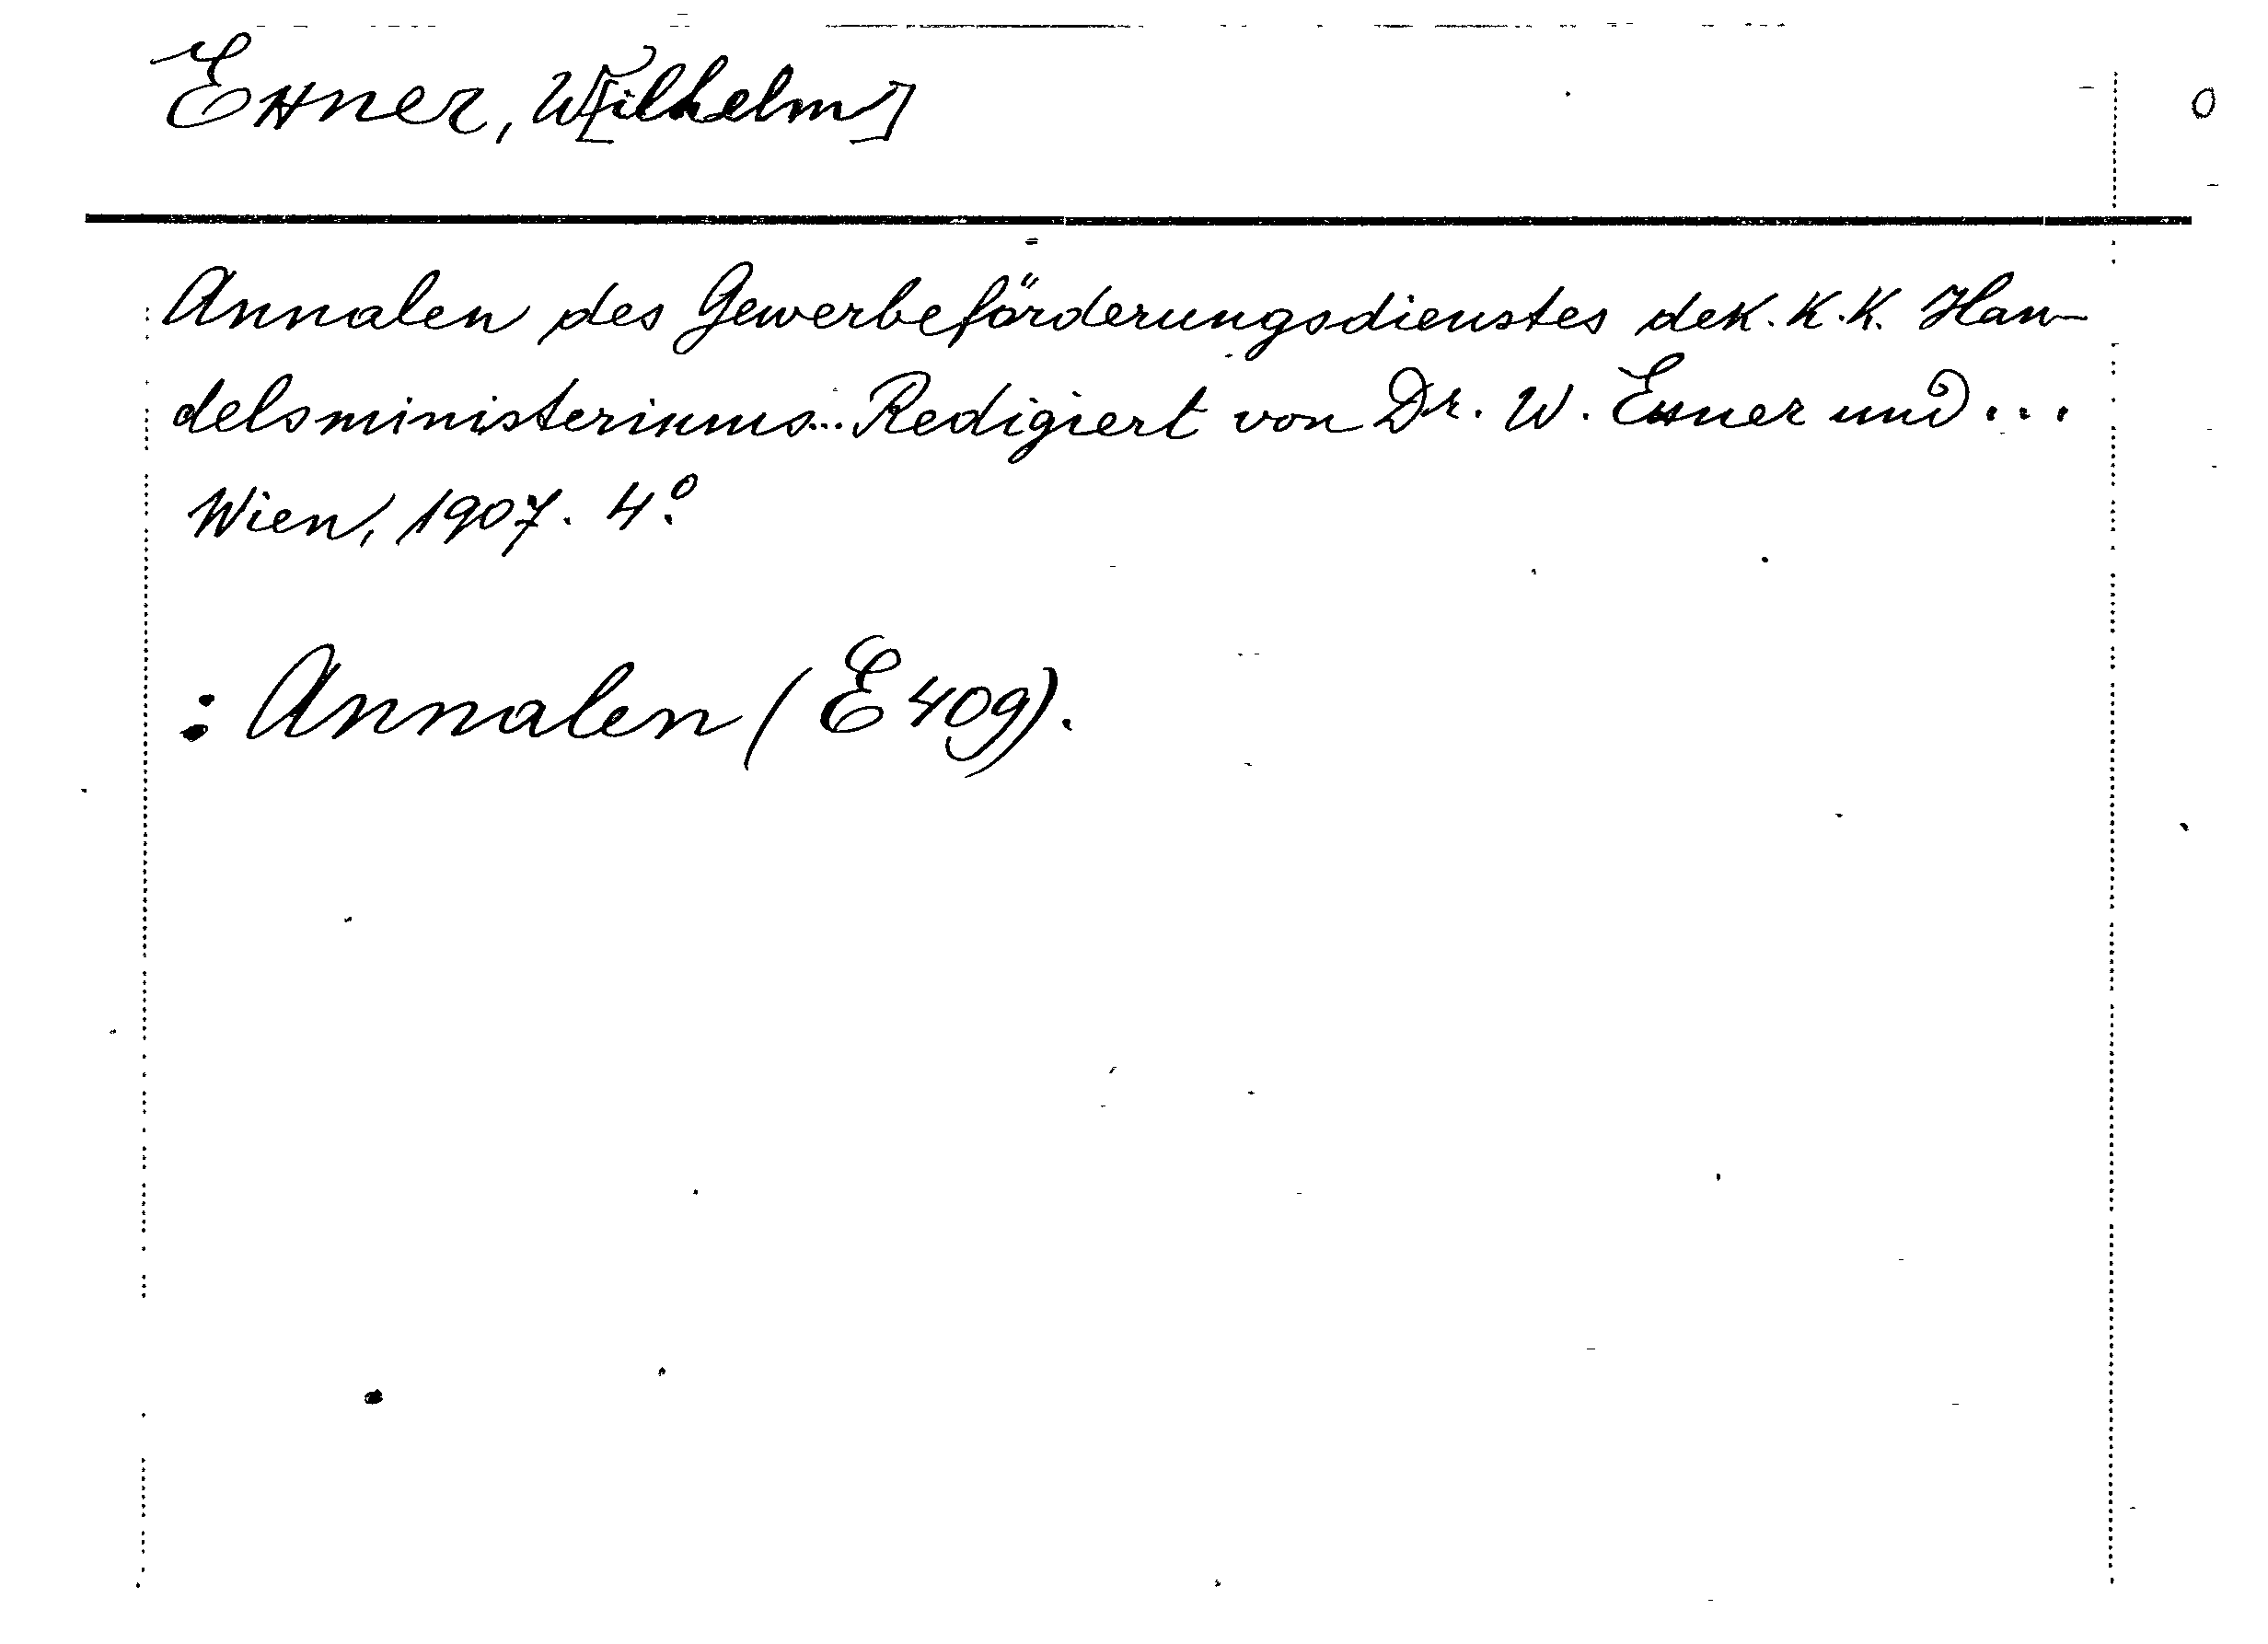 Exner, W[ilhelm]
O
Annalen des Gewerbeförderungsdienstes des K. K. Han-
delsministeriums... Redigiert von Dr. W. Exner und...
Wien, 1907. 4°.
: Annalen (E 409).